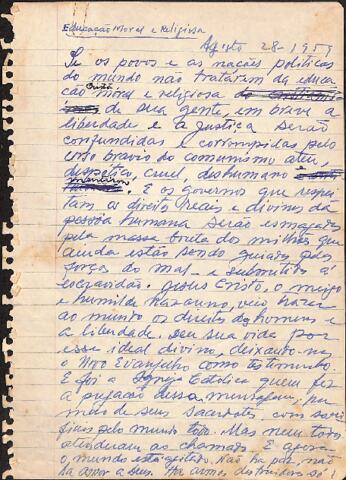 Educação Moral e Religiosa
Agosto 28-1959
Se os povos e as nações políticas
do mundo não tratarem da educa
ção moral e religiosa
cristã
de sua gente, em breve a
liberdade e a justiça serão
confundidas e corrompidas pelo
bravio do comunismo ateu,
despótico, cruel, deshumano
mentiroso
. E os governos que respei
tam os direitos reais e divinos da
pessoa humana serão esmagados
pela massa bruta dos milhões que
ainda estão sendo guiados pelas
forças do mal - e submetidos á
escravidão. Jesus Cristo, o meigo
e humilde Nazareno, veio trazer
ao mundo os direitos dos homens e
a liberdade. Deu sua vida por
esse ideal divino, deixando-nos
o Novo Evangelho como testemunho.
E foi a Igreja Católica quem fez
a pregação dessa mensagem, por
meio de seus Sacerdotes, com sacri
fícios pelo mundo todo. Mas nem todos
atenderam ao chamado. E agora
o mundo está agitado. Não ha paz, não
ha amor a Deus. Ha armas destruidoras só!